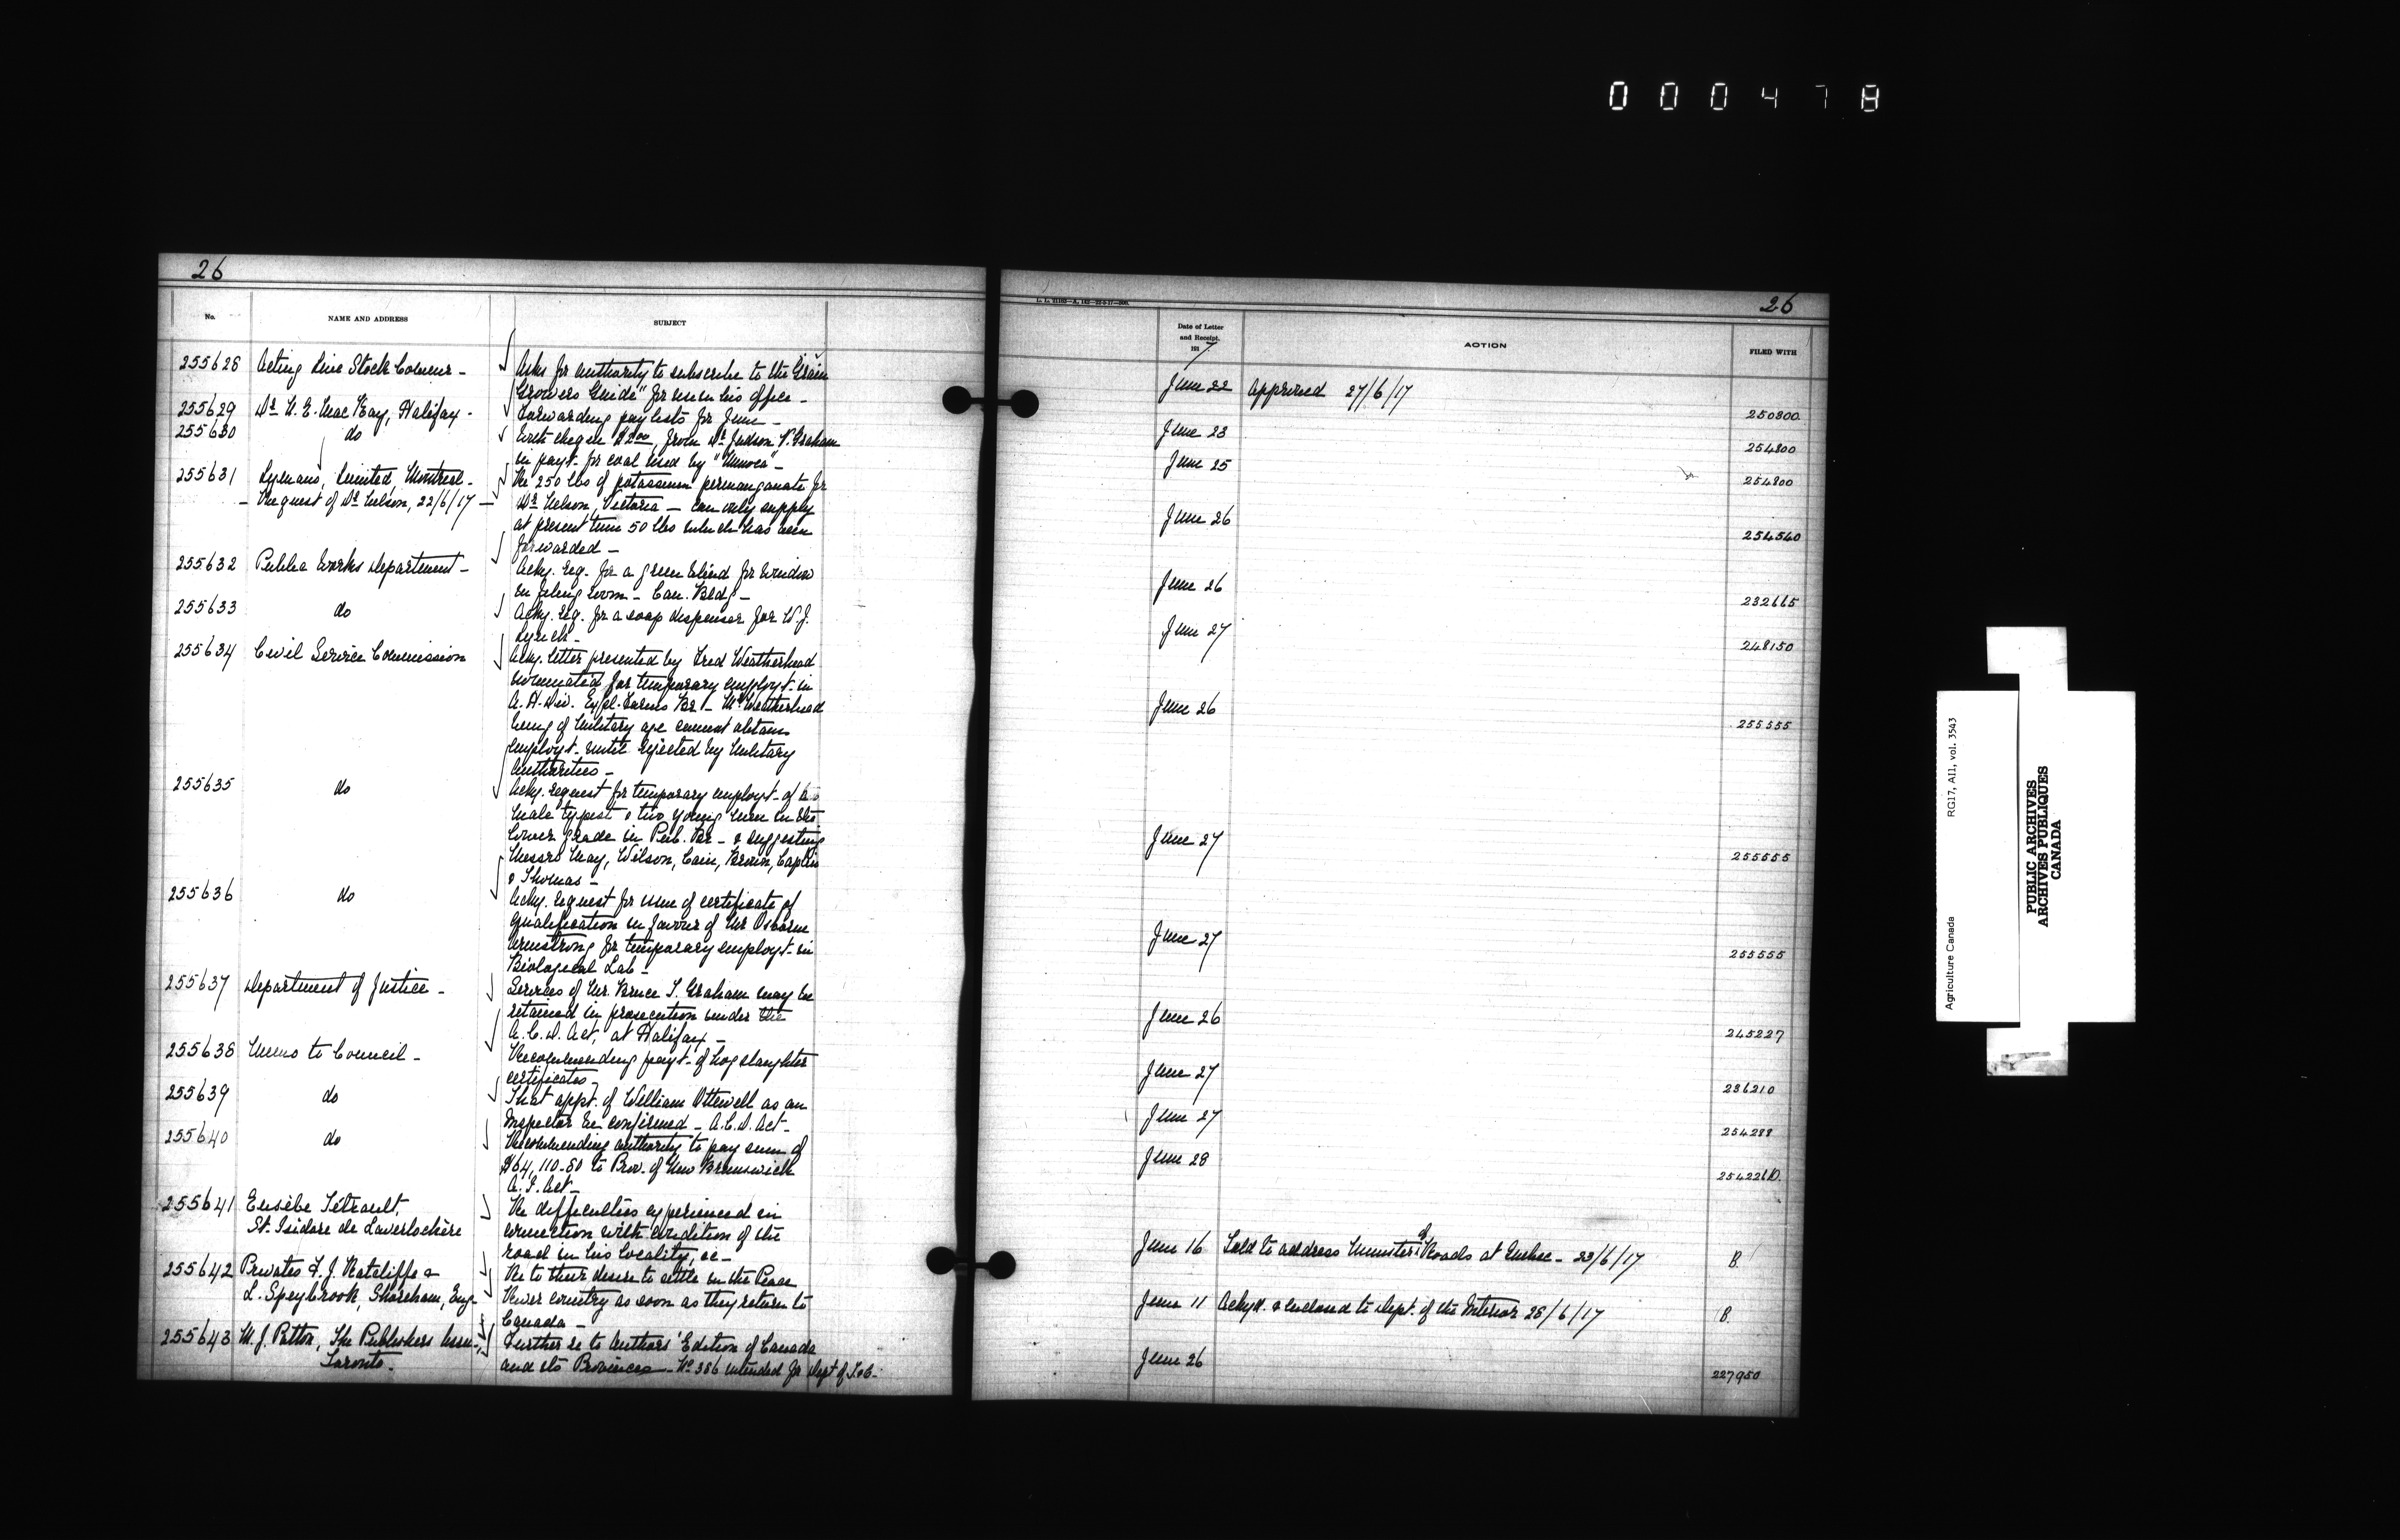 000478
26
No.
NAME AND ADDRESS
SUBJECT
255628 Acting Live Stock Commr -
Asks for authority to subscribe to the "Grain
Growers Guide" for use in his office -
255629 Dr N. E. MacKay, Halifax -
Forwarding pay lists for June -
255630 do
With cheque $2.00, from Dr Judson V. Graham
in payt. for coal used by
255631 Lymans, Limited, Montreal -
- Request of Dr Nelson, 22/6/17 -
Re 250 lbs of potassium permanganate for
Dr Nelson, Victoria - can only supply
at present time 50 lbs which has been
forwarded -
255632 Public Works Department -
Acky. req. for a green blind for window
in filing room - Can. Bldg -
255633 do
Acky. req. for a soap dispenser for W. J.
Lynch -
255634 Civil Service Commission
Acky. letter presented by Fred Weatherhead
nominated for temporary employt. in
A. H. Div. Expl. Farms Br - Mr Weatherhead
being of military age cannot obtain
employt. until rejected by military
authorities -
255635 do
Acky. request for temporary employt. of a
male typist & two young men in the
lower grade in Pub. Br - & suggesting
Messrs May, Wilson, Cain, Brown, Caplin
& Thomas -
255636 do
Acky. request for issue of certificate of
qualification in favour of Mr Osborne
Armstrong for temporary employt. in
Biological Lab -
255637 Department of Justice -
Services of Mr. Bruce T. Graham may be
retained in prosecution under the
A. C. D. Act, at Halifax -
255638 Memo to Council -
Recommending payt. of hog slaughter
certificates -
255639 do
That appt. of William Ottewell as an
Inspector be confirmed - A.C.D. Act -
255640 do
Recommending authority to pay sum of
$64,110.80 to Prov. of New Brunswick
A. I. Act -
255641 Eusèbe Tétrault,
St. Isidore de Laverlochère
Re difficulties experienced in
connection with condition of the
road in his locality, &c -
255642 Privates F. J. Ratcliffe &
L. Speybrook, Shoreham, Eng -
Re to their desire to settle in the Peace
River country as soon as they return to
Canada -
255643 M. J. Patton, The Publishers Assn.,
Toronto -
Further re to Authors' Edition of Canada
and its Provinces - No 386 intended for Dept of T. & C. -
26
Date of Letter
and Receipt.
191 7
ACTION
FILED WITH
June 22 Approved 27/6/17 250800
June 23 254800
June 25 254800
June 26 254540
June 26 232665
June 27 248150
June 26 255555
June 27 255555
June 27 255555
June 26 245227
June 27 236210
June 27 254288
June 28 254226D.
June 16 Told to address Minister of Roads at Quebec - 23/6/17 B.
June 11 Acky'd. & enclosed to Dept. of the Interior 28/6/17 B.
June 26 227950
Agriculture Canada RG17, A11, vol. 3543
PUBLIC ARCHIVES
ARCHIVES PUBLIQUES
CANADA